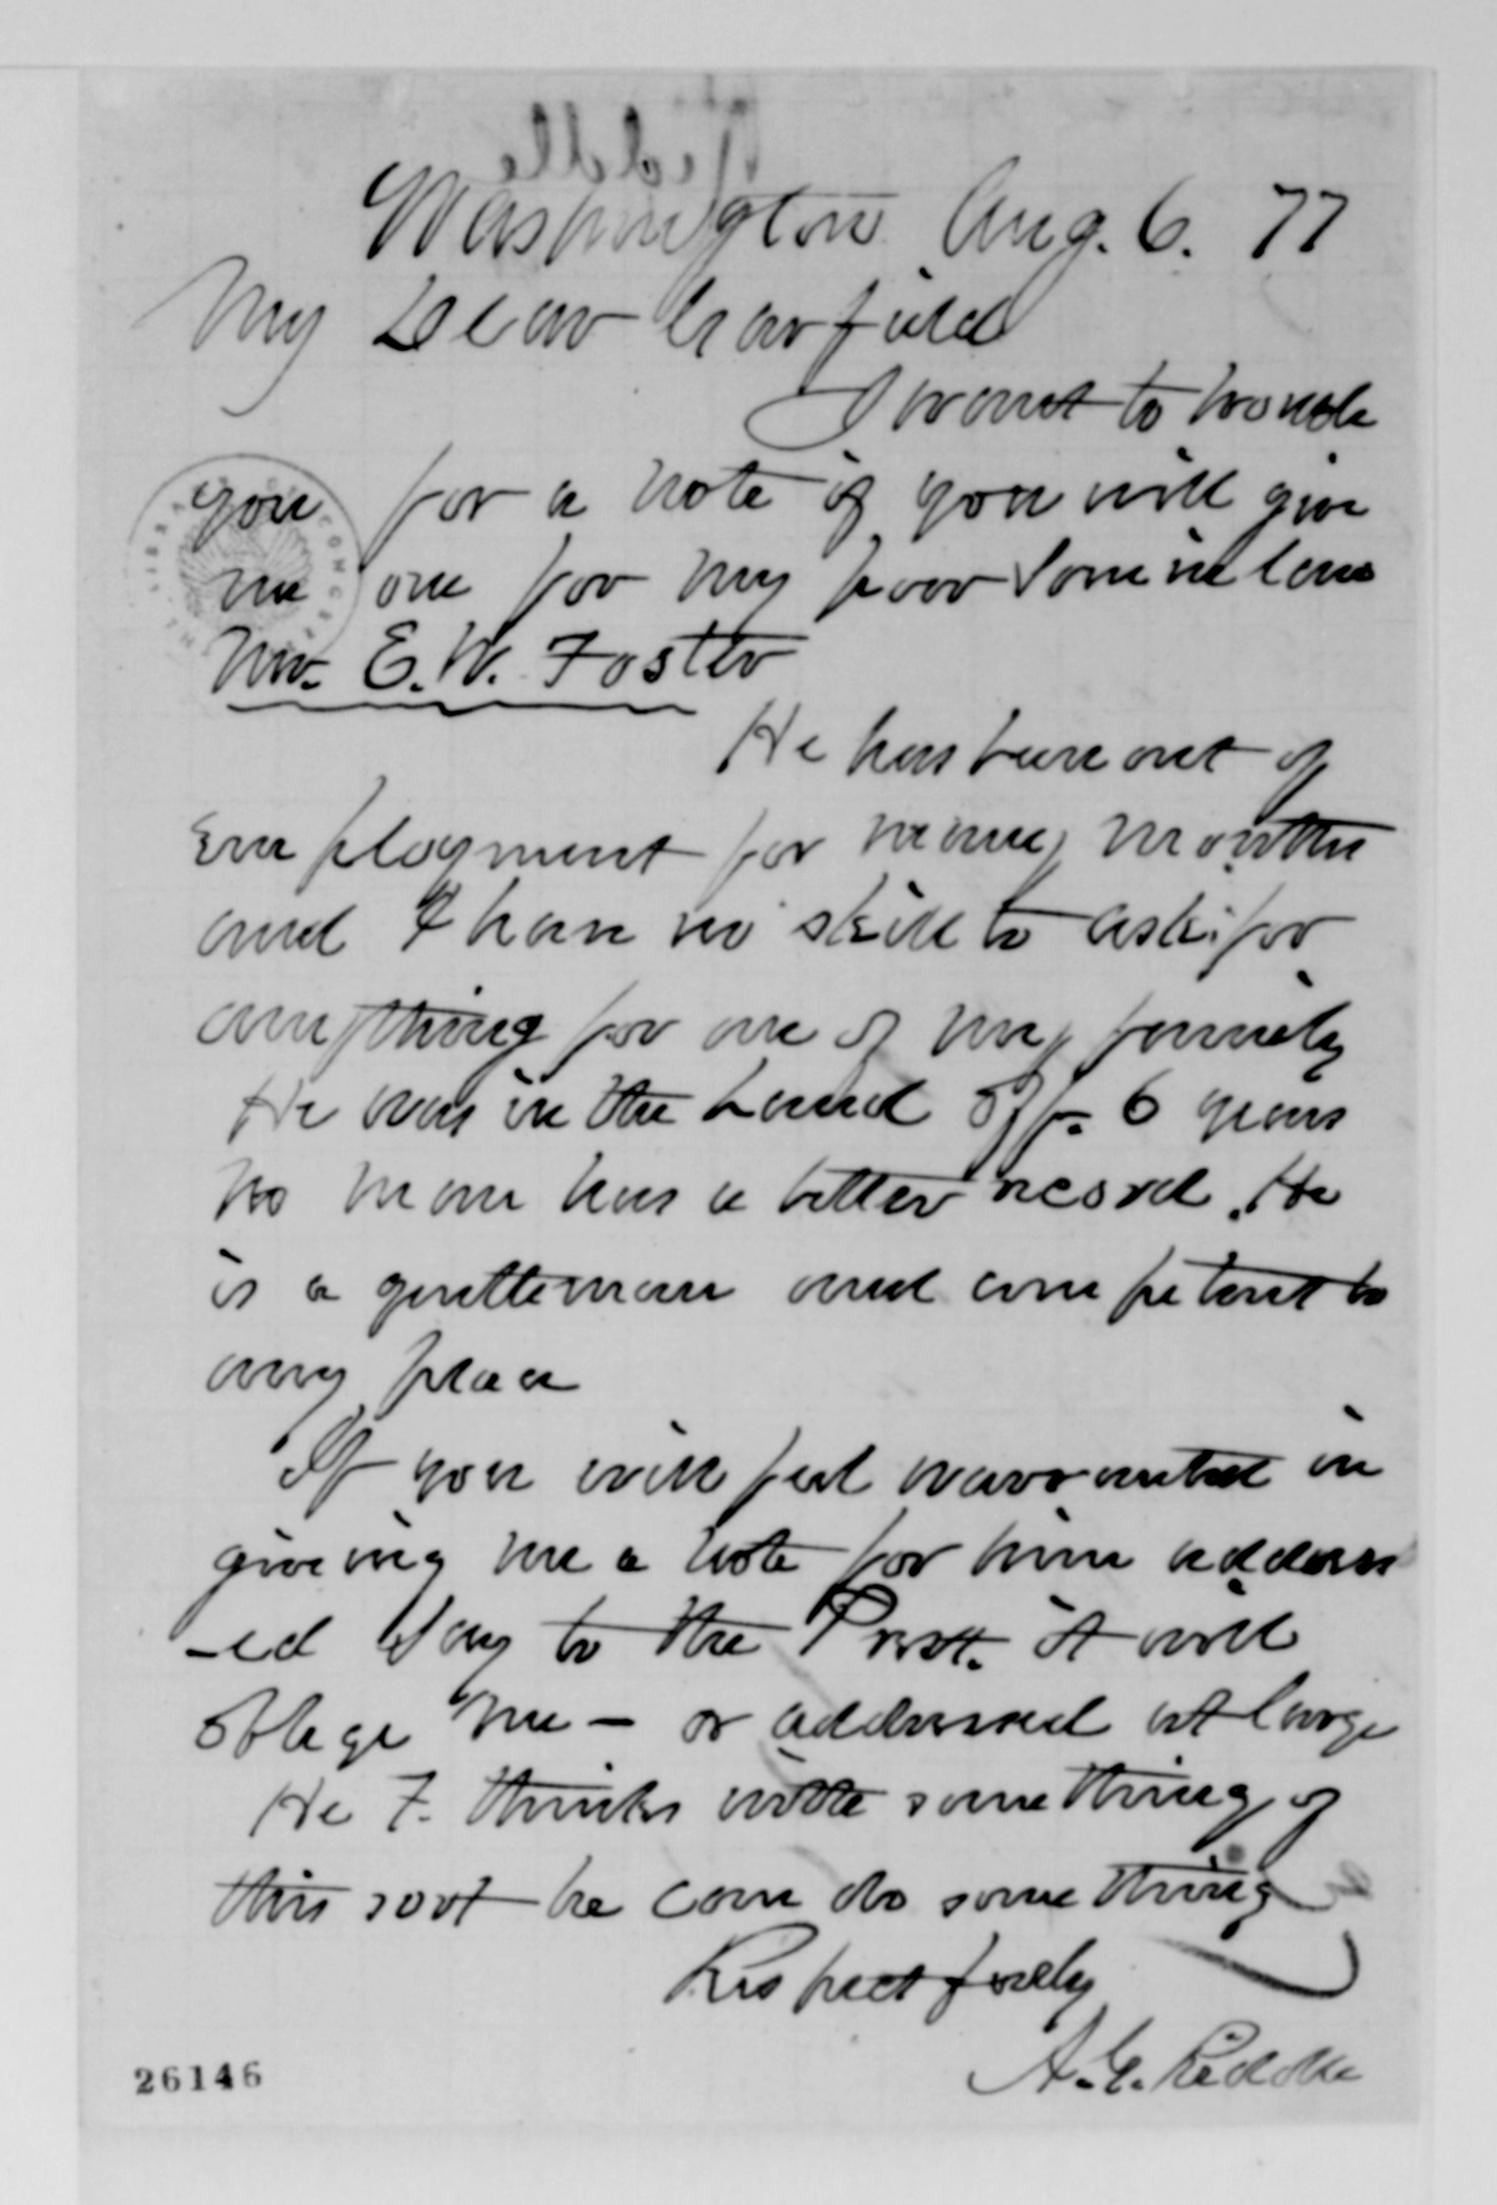 Riddle
Washington Aug. 6. 77
My Dear Garfield
I want to trouble
you for a note if you will give
me one for my poor son in law
Mr. E. W. Foster
He has been out of
Employment for many months
and I have no skill to ask for
anything for one of my family
He was in the Land Off. 6 years
No man has a better record. He
is a gentleman and competent to
any place
If you will feel warranted in
giveing me a note for him address
-ed say to the Prest. it will
oblege me — or addressed at large
He F. thinks with something of
this sort he can do something
Respectfully
A. G. Riddle
26146